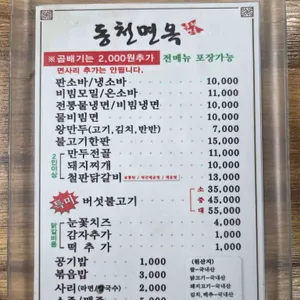 동천면옥
※ 곱빼기는 2,000원추가 전메뉴 포장가능
면사리 추가는 안됩니다.
판소바/냉소바 10,000
비빔모밀/온소바 11,000
전통물냉면/비빔냉면 10,000
물비빔면 11,000
왕만두(고기,김치,반반) 7,000
불고기한판 15,000
2인이상
만두전골 11,000
돼지찌개 10,000
철판닭갈비 13,000
특미 버섯불고기
소 35,000
중 45,000
대 55,000
눈꽃치즈 4,000
감자추가 1,000
떡 추가 1,000
공기밥 1,000
볶음밥 3,000
사리
(원산지)
쌀-국내산
닭고기-국내산
돼지고기-국내산